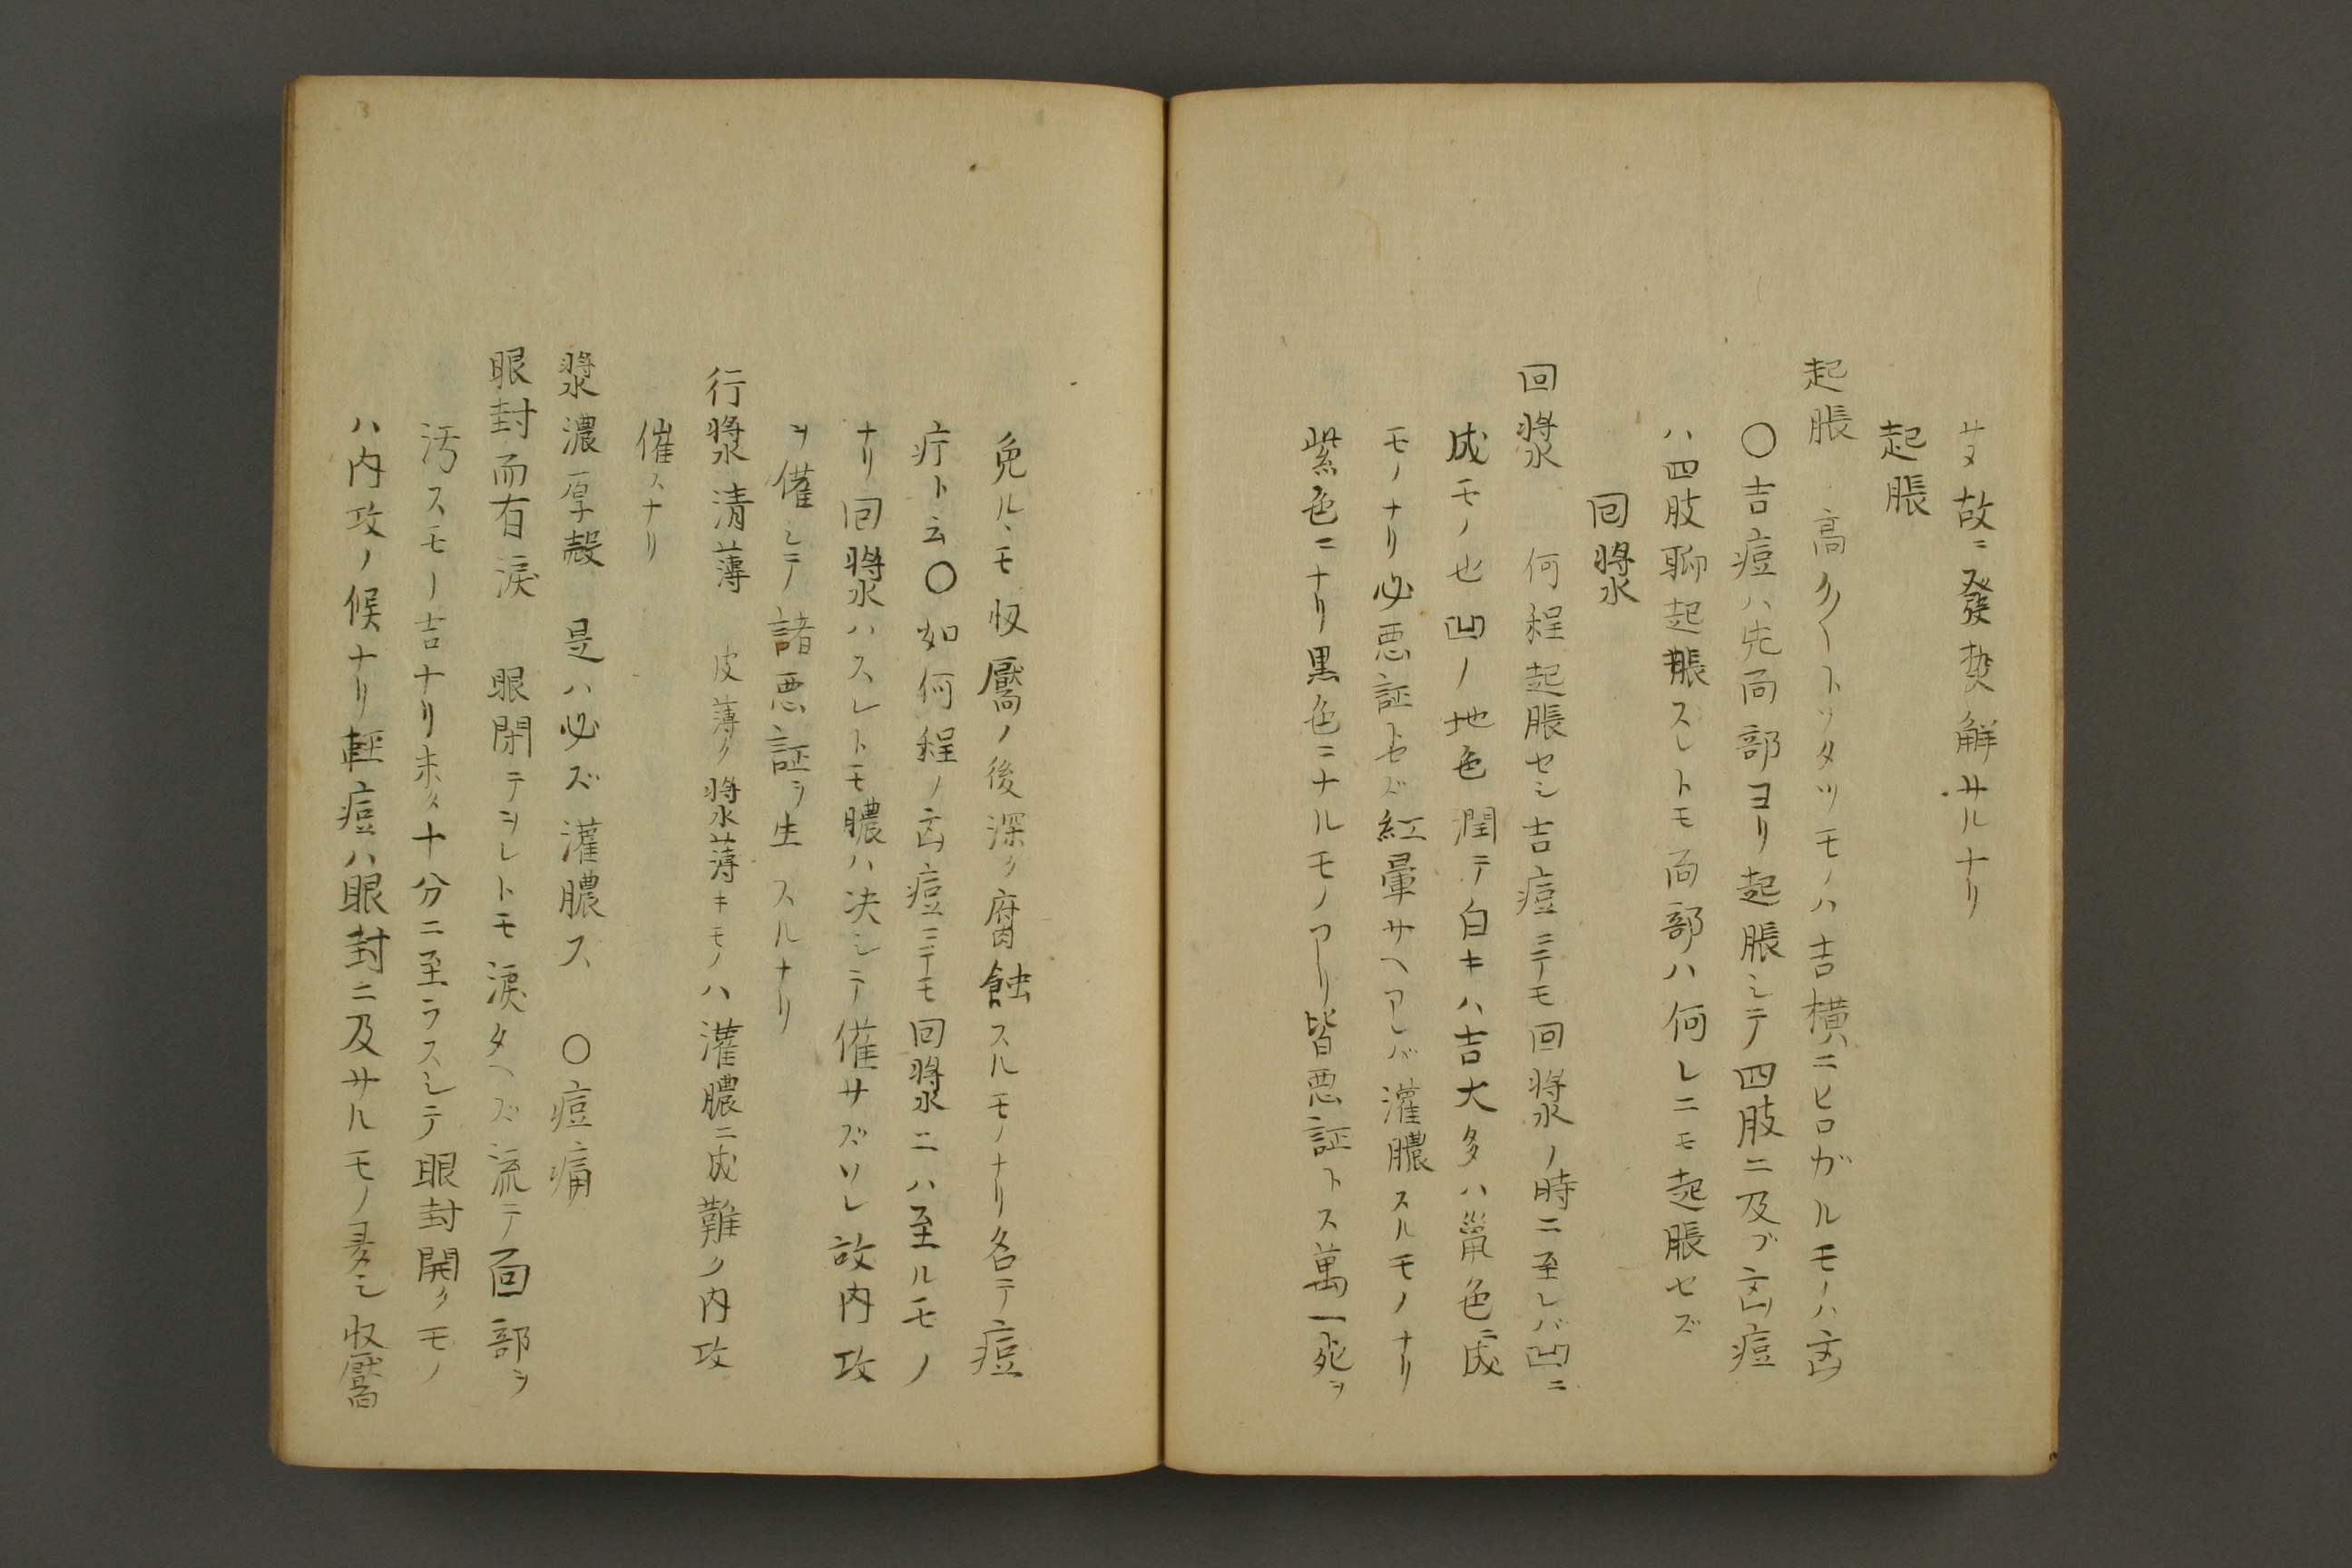 サヌ故ニ發熱解サルナリ
起脹
起脹 高ク〳〵トソタツモノハ吉横ニヒロガルモノハ凶
〇吉痘ハ先面部ヨリ起脹シテ四肢ニ及ブ凶痘
ハ四肢聊起脹スレトモ面部ハ何レニモ起脹セズ
回漿
回漿 何程起脹セシ吉痘ニテモ回漿ノ時ニ至レバ凹ニ
成モノ也凹ノ地色潤テ白キハ吉大多ハ鼠色ニ成
モノナリ必悪証トセズ紅暈サヘアレバ灌膿スルモノナリ
紫色ニナリ黒色ニナルモノアリ皆悪証トス萬一死ヲ
免ルヽモ収靨ノ後深ク腐蝕スルモノナリ名テ痘
疔ト云〇如何程ノ凶痘ニテモ回漿ニハ至ルモノ
ナリ回漿ハスレトモ膿ハ決シテ催サズソレ故内攻
ヲ催シテ諸悪証ヲ生スルナリ
行漿清薄 皮薄ク漿薄キモノハ灌膿ニ成難ク内攻
催スナリ
漿濃厚殻 是ハ必ズ灌膿ス 〇痘痛
眼封而有涙 眼閉テヲレトモ涙タヘズ流テ面部ヲ
汚スモノ吉ナリ未タ十分ニ至ラスシテ眼封開クモノ
ハ内攻ノ候ナリ軽痘ハ眼封ニ及サルモノ多シ収靨